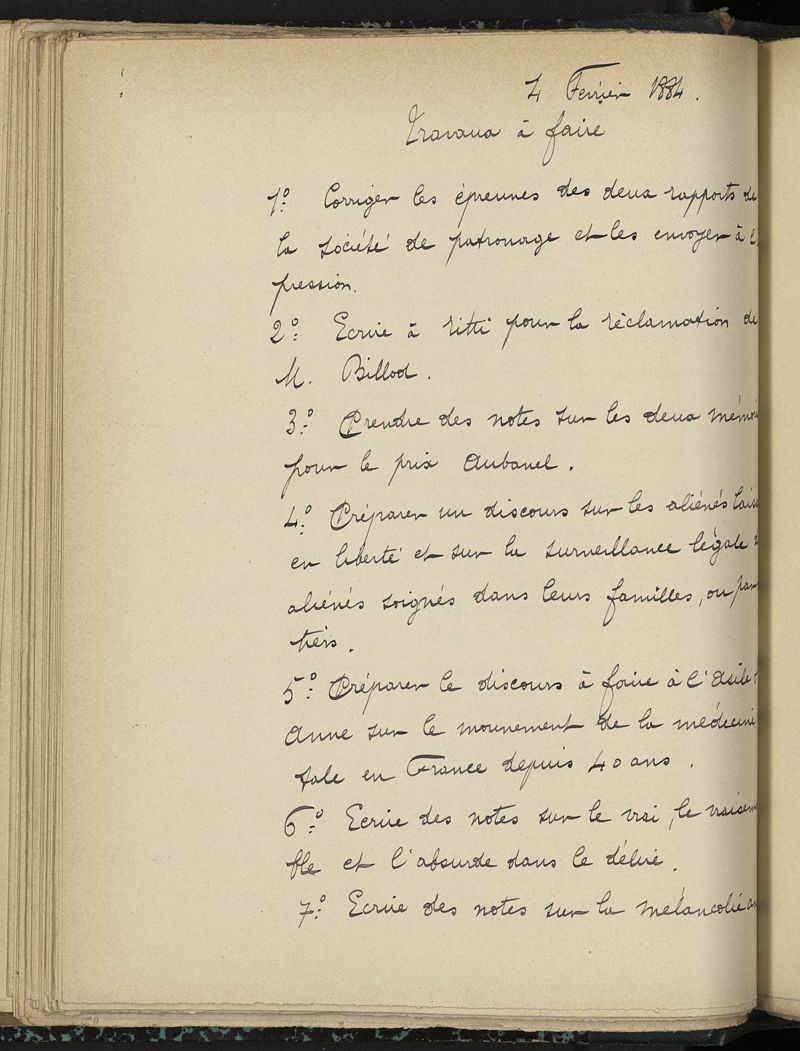 4 Fevrier 1884.
Travaux à faire
1º Corriger les épreuves des deux rapports de
la société de patronage et les envoyer à l
pression.
2º Ecrire à Ritti pour la réclamation de
M. Billod.
3º Prendre des notes sur les deux mémoi
pour le prix Aubanel.
4º Préparer un discours sur les aliénés lais
en liberté et sur la surveillance légale
aliénés soignés dans leurs familles, ou par
tiers.
5º Préparer le discours à faire à l'Asile
Anne sur le mouvement de la médecine
tale en France depuis 40 ans.
6º Ecrire des notes sur le vrai, le vraisem
ble et l'absurde dans le délire.
7º Ecrire des notes sur la mélancolie an